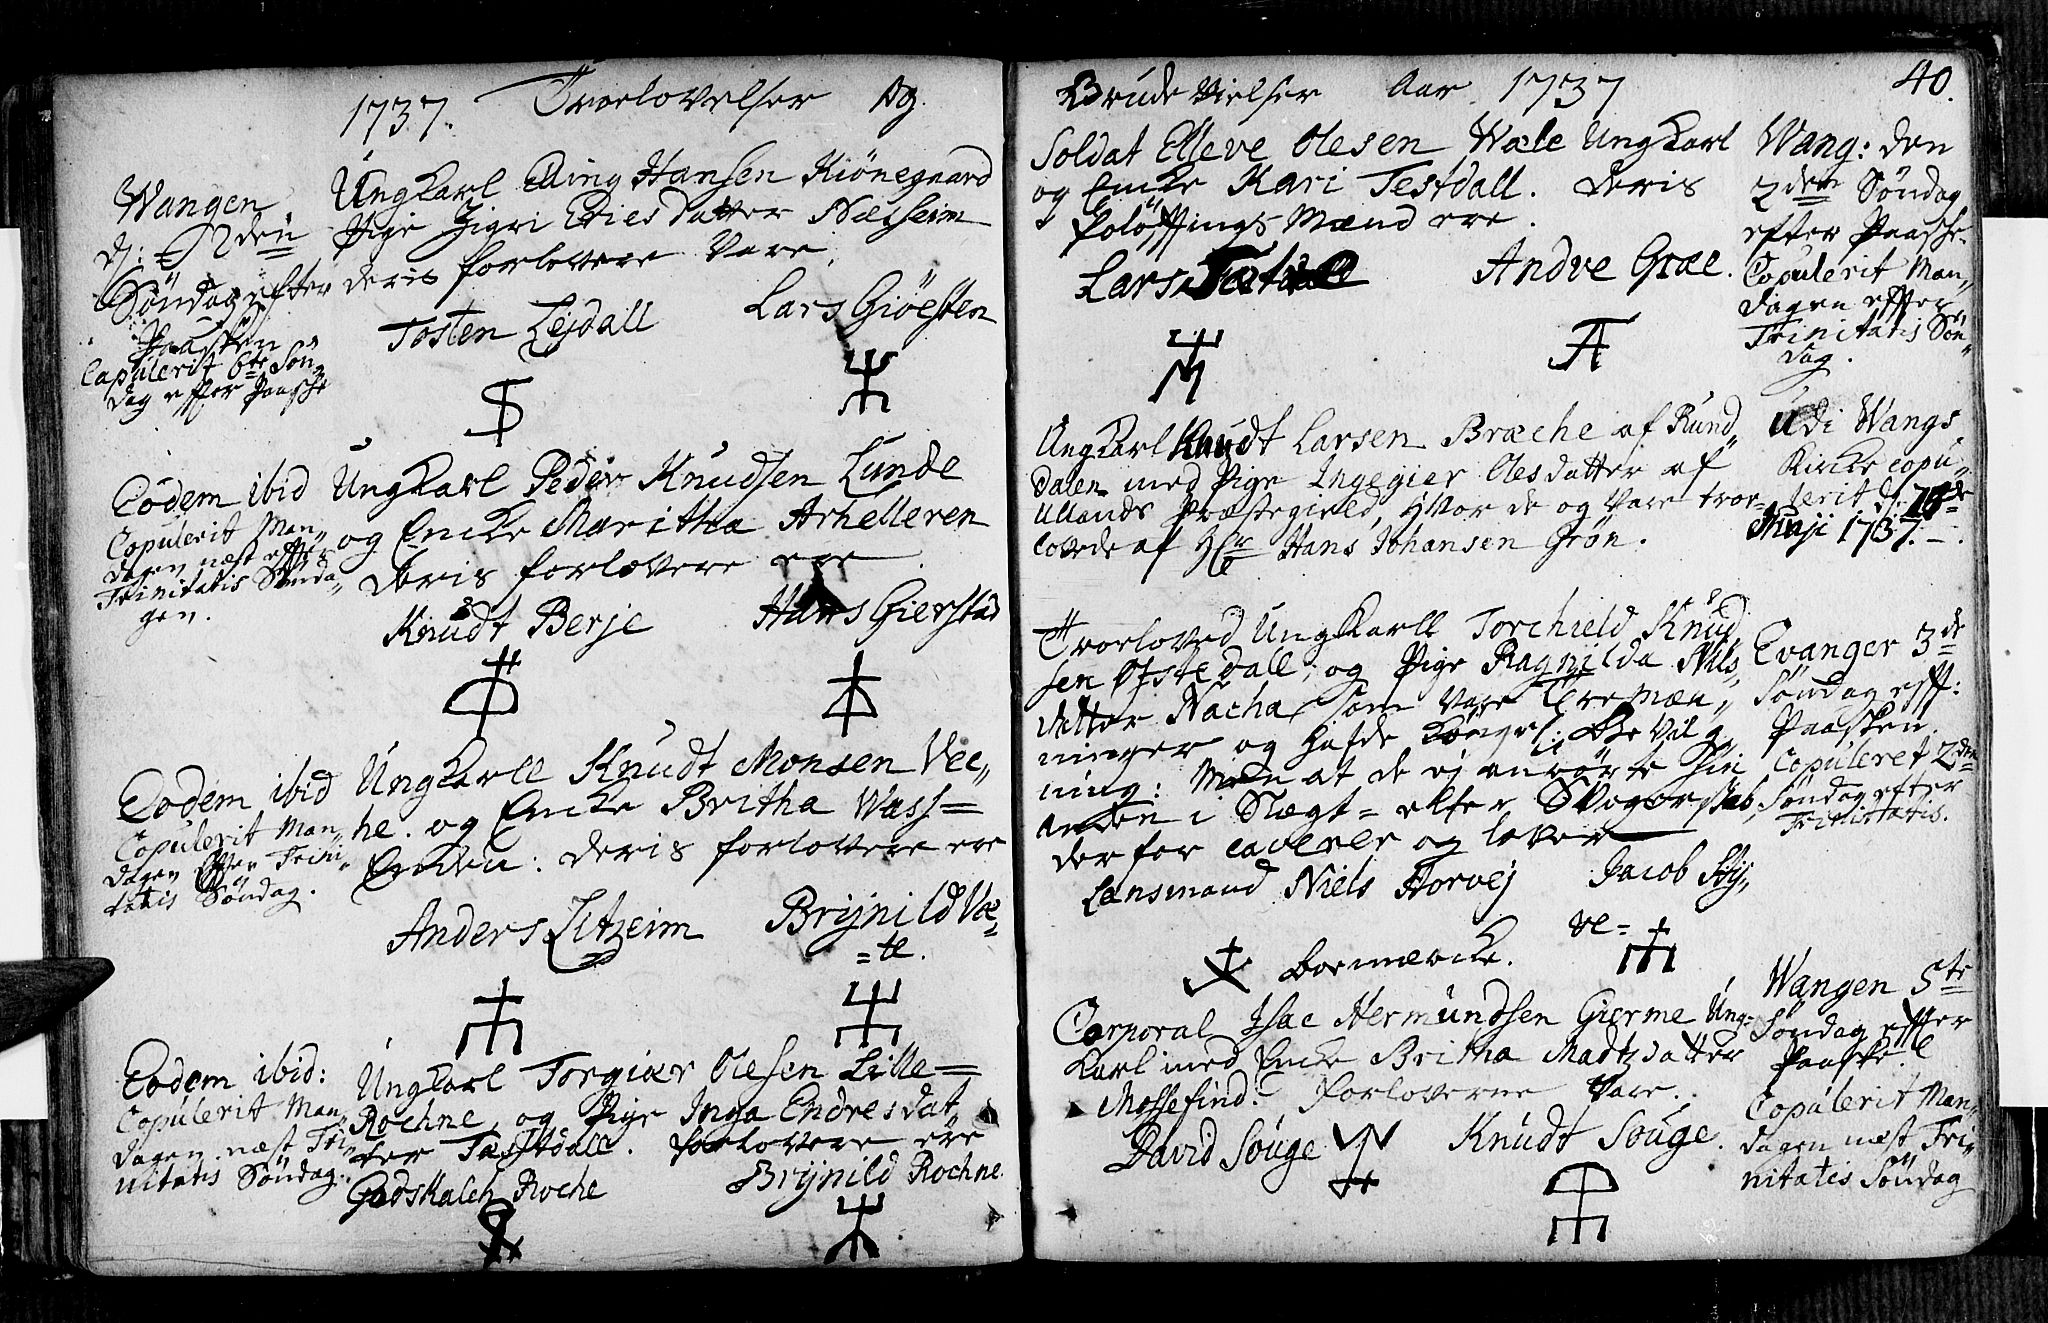 1737. Trorlovelser og
Wangen
d: 2den
Søndag efter
Paasken
Copulerit 6te Søn„
dag efter Paasche
Ungkarl Elling Hansen Kiönegaard
Pige Zigri Ellies datter Næsheim
deris forlovere Vare,
Tosten Lejdall Lars Giöesten
Eodem ibid
Copulerit Man„
dagen næst effter
Trinitatis Sönda„
gen.
Ungkarl Peder Knudsen Lunde
og Encke Maritha Arhelleren
deris forlovere ere
Knudt Berje Hans Gierstad
Eodem ibid
Copulerit Man„
dagen effter Trini„
tatis Søndag.
Ungkarll Knudt Monsen Vee„
he. og Encke Britha Wass=
Enden: deris forlovere ere
Anders Zitzeim Brijnild Væ„
=te.
Eodem ibid:
Copulerit Man„
dagen næst Tri„
nitatis Søndag.
Ungkarl Torgiær Olesen Lille=
Rochne, og Pige Inga Endresdat„
ter Tæstdall. forlovere ere
Godskalch Roche Brijnild Rochne
Brude Vielser Aar 1737 40.
Soldat Elleve Olesen Wæle Ungkarl
og Encke Kari Testdall. deris
Forløffnings Mænd ere.
Lars Tæstdall Andve Græe.
Wang: den
2den Søndag
efter Paasche.
Copulerit Man„
dagen effter
Trinitatis Søn„
dag.
Ungkarl Knudt Larsen Bræche af Rund„
dalen med Pige Ingegier Olesdatter af
Ullands Præstegield, hvor de og vare tror„
lovede af Hr Hans Johansen Grøn.
Udi Wangs
Kircke copu„
lerit d:
Maji 1737.–.
Trorloved Ungkarll Torchield Knud„
sen Østedall, og Pige Ragnilda Nils„
datter Nacha, som vare Tremæn„
ninger og hafde Kongel: Bevilg„
ning: Men at de ej anrørte hin„
anden i Slægt= eller Svogerskab,
derfor caverer og lover
Lænsmand Niels Horvej Jacob Stÿ„
ve=
boemercke.
Evanger 3de
Søndag eff:
Paasken.
Copuleret 2den
Søndag efter
Trinitatis.
Corporal Isac Hermundsen Gierme Ung=
karl med Encke Britha Madtzdatter
Møssefind: Forloverne Vare.
David Souge Knudt Souge.
Wangen 5te
Søndag effter
Paaske.
Copulerit Man„
dagen næst Tri„
nitatis Søndag